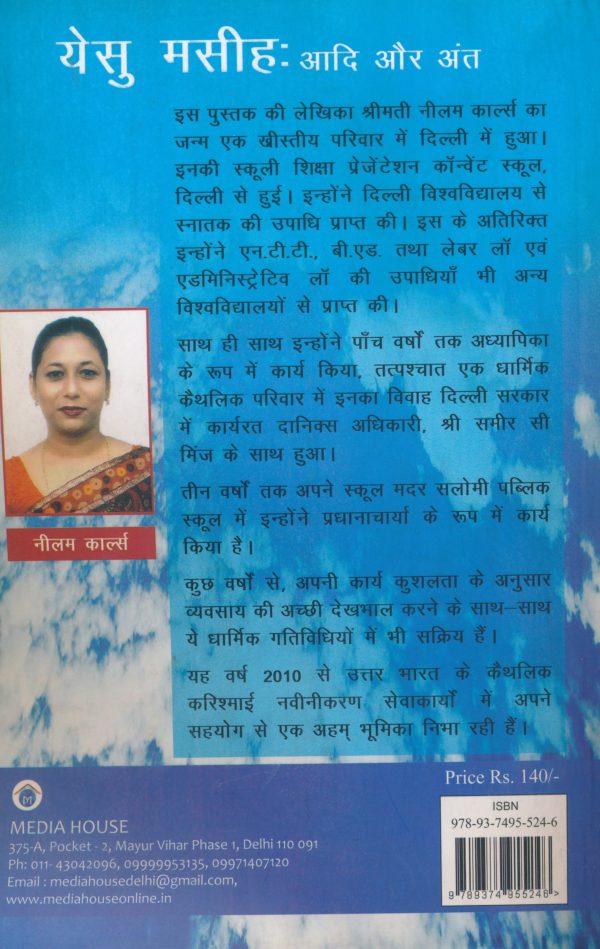 येसु मसीह: आदि और अंत
इस पुस्तक की लेखिका श्रीमती नीलम कार्ल्स का
जन्म एक ख्रीस्तीय परिवार में दिल्ली में हुआ।
इनकी स्कूली शिक्षा प्रेजेंटेशन कॉन्वेंट स्कूल,
दिल्ली से हुई। इन्होंने दिल्ली विश्वविद्यालय से
स्नातक की उपाधि प्राप्त की। इस के अतिरिक्त
इन्होंने एन.टी.टी., बी.एड. तथा लेबर लॉ एवं
एडमिनिस्ट्रेटिव लॉ की उपाधियाँ भी अन्य
विश्वविद्यालयों से प्राप्त की।
साथ ही साथ इन्होंने पाँच वर्षों तक अध्यापिका
के रूप में कार्य किया, तत्पश्चात एक धार्मिक
कैथलिक परिवार में इनका विवाह दिल्ली सरकार
में कार्यरत दानिक्स अधिकारी, श्री समीर सी
मिंज के साथ हुआ।
तीन वर्षों तक अपने स्कूल मदर सलोमी पब्लिक
स्कूल में इन्होंने प्रधानाचार्या के रूप में कार्य
किया है।
कुछ वर्षों से, अपनी कार्य कुशलता के अनुसार
व्यवसाय की अच्छी देखभाल करने के साथ–साथ
ये धार्मिक गतिविधियों में भी सक्रिय हैं।
यह वर्ष 2010 से उत्तर भारत के कैथलिक
करिश्माई नवीनीकरण सेवाकार्यों में अपने
सहयोग से एक अहम् भूमिका निभा रही हैं।
नीलम कार्ल्स
MEDIA HOUSE
375-A, Pocket - 2, Mayur Vihar Phase 1, Delhi 110 091
Ph: 011- 43042096, 09999953135, 09971407120
Email : mediahousedelhi@gmail.com,
www.mediahouseonline.in
Price Rs. 140/-
ISBN
978-93-7495-524-6
9 789374 955246 >